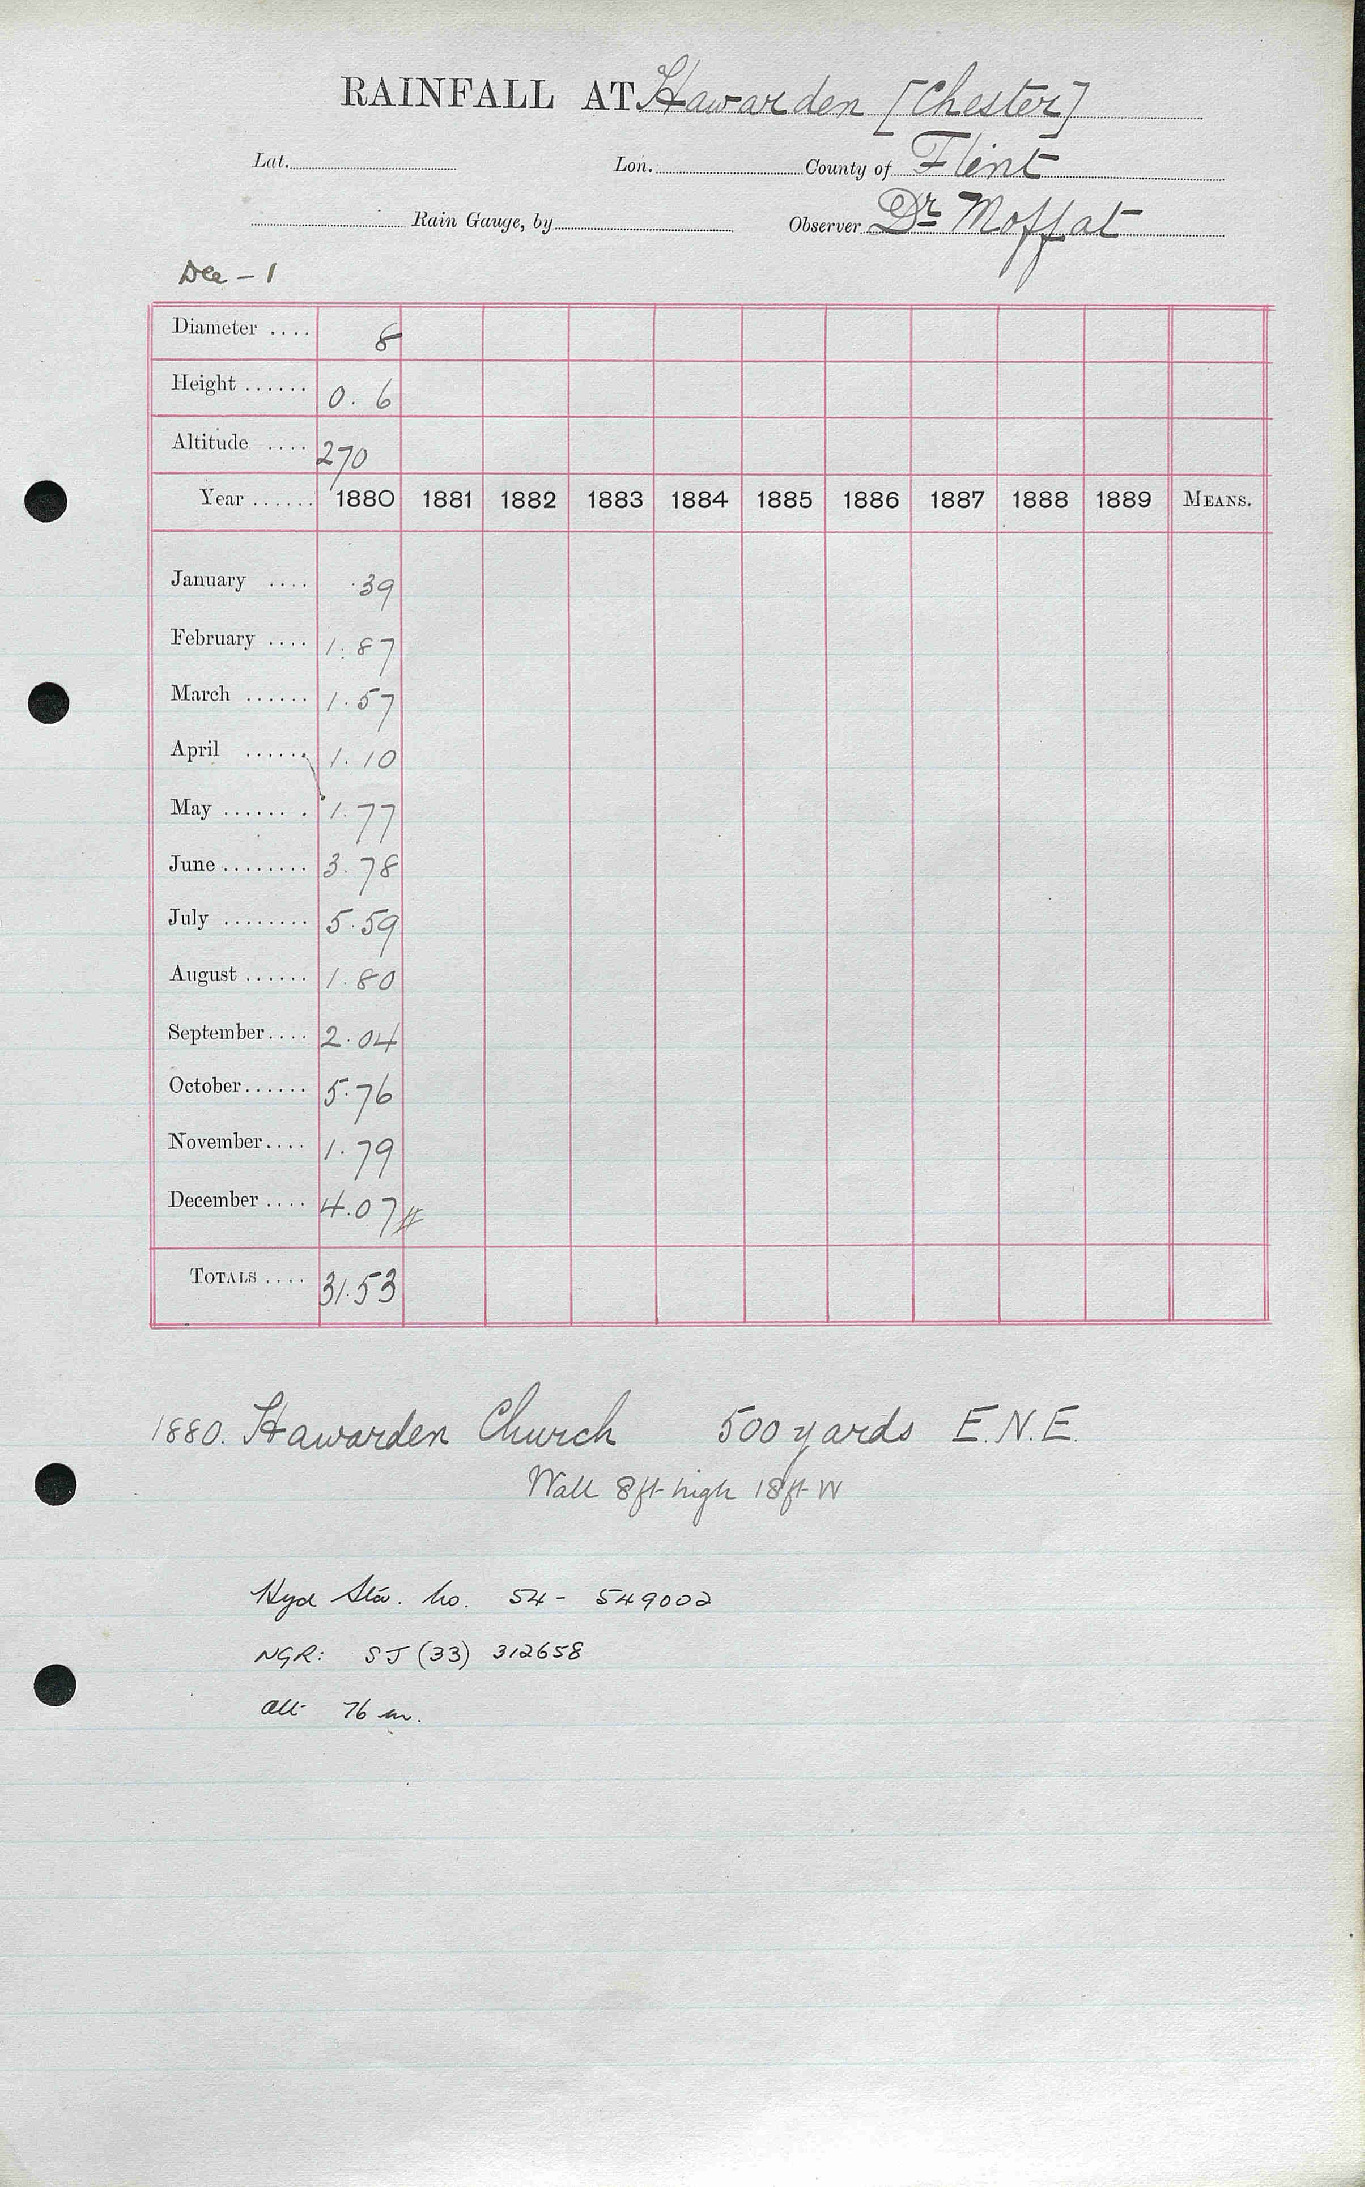 RAINFALL AT Hawarden [Chester]
Lat. Lon. County of Flint
Rain Gauge, by Observer Dr Moffat
Dee - 1
Diameter .... 8
Height ...... 0. 6
Altitude .... 270
Year ...... 1880 1881 1882 1883 1884 1885 1886 1887 1888 1889 MEANS.
January .... .39
February .... 1.87
March ...... 1.57
April ...... 1.10
May ....... 1.77
June ........ 3.78
July ........ 5.59
August ...... 1.80
September.... 2.04
October...... 5.76
November.... 1.79
December .... 4.07
TOTALS .... 31.53
1880. Hawarden Church 500 yards E.N.E.
Wall 8ft high 18ft W
Hyd Sta. No. 54 - 549002
NGR: SJ (33) 312658
alt 76 m.